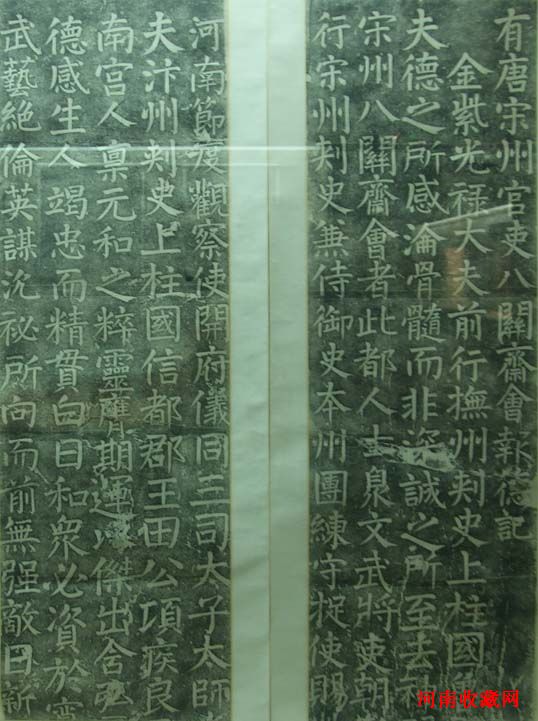 有唐宋州官吏八關齋會報德記
金紫光祿大夫前行撫州刾史上柱國
夫德之所感淪骨髓而非 誠之所至去
宋州八關齋會者此都人士 泉文武將吏朝
行宋州刾史兼侍御史本州團練守捉使賜
河南節度觀察使開府儀同三司太子太師
夫汴州刾史上柱國信都郡王田公頃疾良
南宫人稟元和之粹靈膺期運 傑出含
德感生人竭忠而精貫白日和衆必資於
武藝絶倫英謀沉祕所向而前無强敵日新
河南收藏网